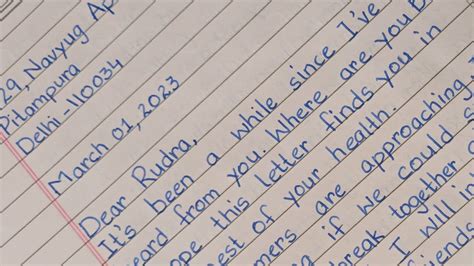 29, Navyug Ap
Pitampura
Delhi - 110034
March 01, 2023
Dear Rudra,
It's been a while since I've
eard from you. Where are you?
ope this letter finds you in
est of your health.
mers are approaching
ng if we could s
break together
I will i
friends